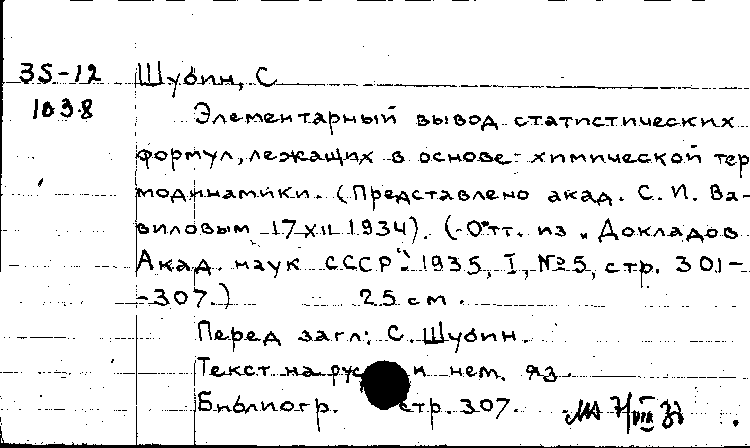 35-12 Шубин, С
1038
Элементарный вывод статистических
формул, лежащих в основе химической тер
модинамики. (Представлено акад. С. И. Ва-
виловым 17 XII 1934). (-Отт. из „Докладов
Акад. наук СССР": 1935, I, №5, стр. 301-
-307.) 25 см.
Перед загл: С. Шубин.
Текст на рус и нем. яз.
Библиогр. стр. 307.